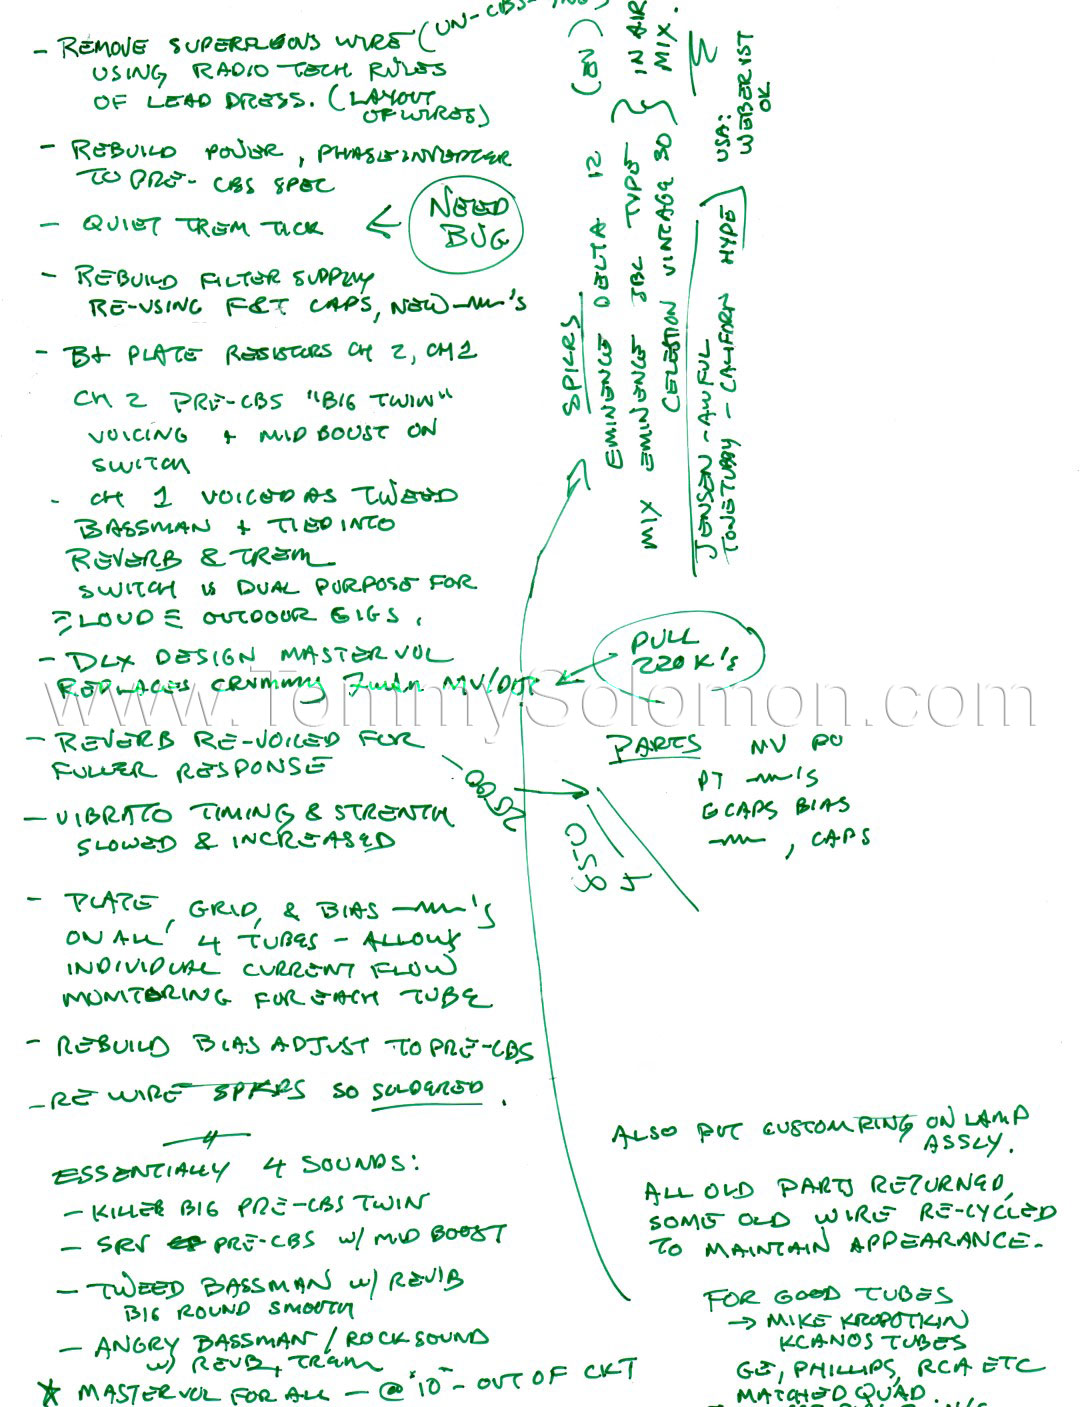 - REMOVE SUPERFLOUS WIRE (UN-CBS-
USING RADIO TECH RULES
OF LEAD DRESS. (LAYOUT
OF WIRES)
- REBUILD POWER, PHASE INVERTER
TO PRE-CBS SPEC
- QUIET TREM TICK ← NEED
BUG
- REBUILD FILTER SUPPLY
RE-USING F&T CAPS, NEW 's
- B+ PLATE RESISTORS CH 2, CH 1
CH 2 PRE-CBS "BIG TWIN"
VOICING + MID BOOST ON
SWITCH
- CH 1 VOICED AS TWEED
BASSMAN + TIED INTO
REVERB & TREM
SWITCH IS DUAL PURPOSE FOR
LOUD OUTDOOR GIGS.
- DLX DESIGN MASTER VOL
REPLACES CRUMMY MV/DIST
- REVERB RE-VOICED FOR
FULLER RESPONSE
- VIBRATO TIMING & STRENTH
SLOWED & INCREASED
- PLATE, GRID, & BIAS 's
ON ALL 4 TUBES - ALLOWS
INDIVIDUAL CURRENT FLOW
MONITORING FOR EACH TUBE
- REBUILD BIAS ADJUST TO PRE-CBS
- RE WIRE SPKRS SO SOLDERED.
ESSENTIALLY 4 SOUNDS:
- KILLER BIG PRE-CBS TWIN
- SRV PRE-CBS W/ MID BOOST
- TWEED BASSMAN W/ REVIB
BIG ROUND SMOOTH
- ANGRY BASSMAN / ROCK SOUND
W/ REVB, TREM
* MASTER VOL FOR ALL - @ "10" - OUT OF CKT
SPKRS
EMINENCE DELTA 12 (EN)
MIX EMINENCE JBL TYPE } IN AIR
CELESTION VINTAGE 30 } MIX.
JENSEN - AWFUL
TONETUBBY - CALIFORN HYPE
USA:
WEBERVST
OK
PULL
220K's
PARTS MV PO
PT 's
6 CAPS BIAS
, CAPS
ALSO PUT CUSTOM RING ON LAMP
ASSLY.
ALL OLD PARTS RETURNED,
SOME OLD WIRE RE-CYCLED
TO MAINTAIN APPEARANCE.
FOR GOOD TUBES
→ MIKE KROPOTKIN
KCANOS TUBES
GE, PHILLIPS, RCA ETC
MATCHED QUAD.
www.TommySolomon.com